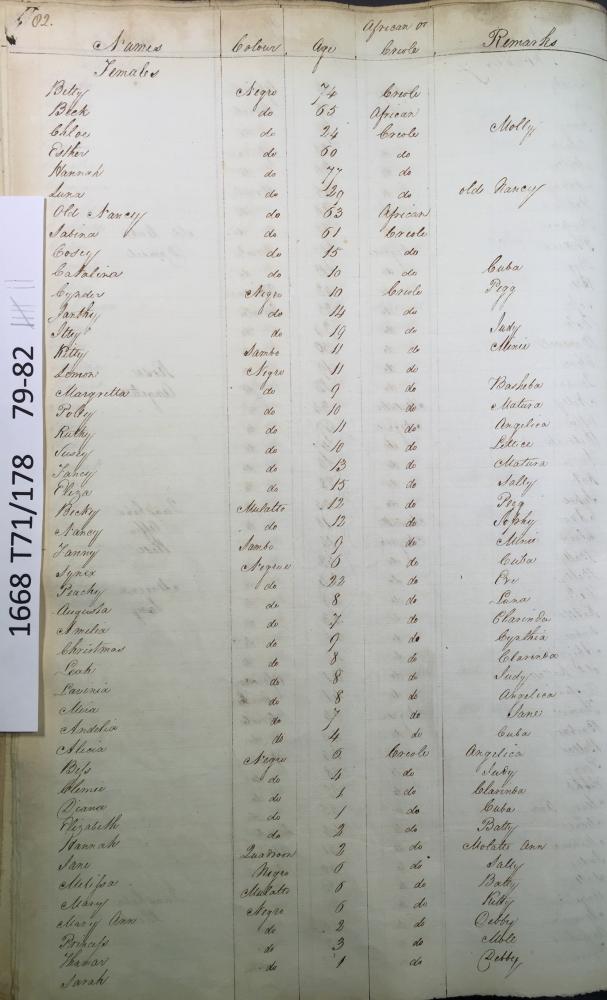 82.
Names Colour Age African or Creole Remarks
Females
Betty Negro 74 Creole
Beck do 65 African
Chloe do 24 Creole Molly
Esther do 60 do
Hannah do 77 do
Luna do 29 do old Nancy
Old Nancy do 63 African
Sabina do 61 Creole
Cosey do 15 do
Catalina do 10 do Cuba
Cynder Negro 10 Creole Pegg
Janthy do 14 do
Itty do 19 do Judy
Kitty Sambo 11 do Mimie
Lomon Negro 11 do
Margretta do 9 do Basheba
Polly do 10 do Matura
Ruthy do 11 do Angelica
Susey do 10 do Lettice
Fancy do 13 do Matura
Eliza do 15 do Sally
Becky Mulatto 12 do Pegg
Nancy do 12 do Sophy
Fanny Sambo 9 do Mimie
Negroe 6 do Cuba
Peachy do 22 do Eve
Augusta do 8 do Luna
Amelia do 7 do Clarinda
Christmas do 9 do Cynthia
Leah do 8 do Clarinda
Lavinia do 8 do Judy
Meia do 8 do Angelica
Andelia do 7 do Jane
Alicia do 4 do Cuba
Bess Negro 6 Creole Angelica
Clemie do 4 do Judy
Diana do 1 do Clarinda
Elizabeth do 1 do Cuba
Hannah do 2 do Batty
Jane Quadroon 2 do Molatto Ann
Melissa Negro 6 do Sally
Mary Mulatto 6 do Batty
Mary Ann Negro 6 do Kitty
Princess do 2 do Debby
Thamar do 3 do
Sarah do 1 do Debby
1668 T71/178 79-82